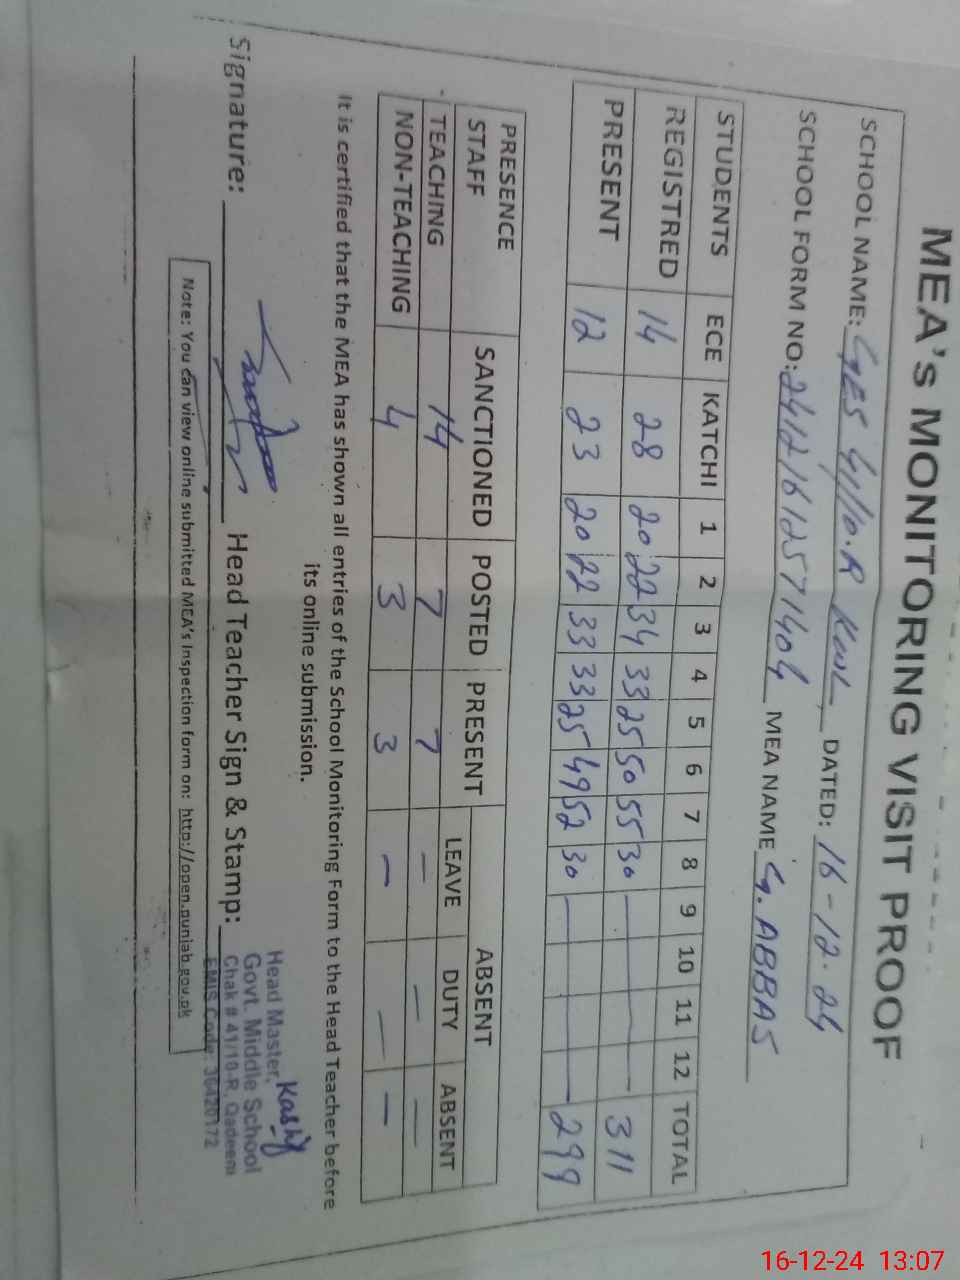 MEA's MONITORING VISIT PROOF
SCHOOL NAME: GES 41/10.R KWL DATED: 16-12-24
SCHOOL FORM NO: 24121612571404 MEA NAME G. ABBAS
STUDENTS ECE KATCHI 1 2 3 4 5 6 7 8 9 10 11 12 TOTAL
REGISTRED 14 28 20 22 34 33 25 50 55 30 — 311
PRESENT 12 23 20 22 33 33 25 49 52 30 — 299
PRESENCE STAFF SANCTIONED POSTED PRESENT ABSENT
LEAVE DUTY ABSENT
TEACHING 14 7 7 — — —
NON-TEACHING 4 3 3 — — —
It is certified that the MEA has shown all entries of the School Monitoring Form to the Head Teacher before
its online submission.
Signature: Head Teacher Sign & Stamp:
Head Master, Kashif
Govt. Middle School
Chak # 41/10-R, Qadeem
EMIS Code: 36420172
Note: You can view online submitted MEA's Inspection form on: http://open.punjab.gov.pk
16-12-24 13:07